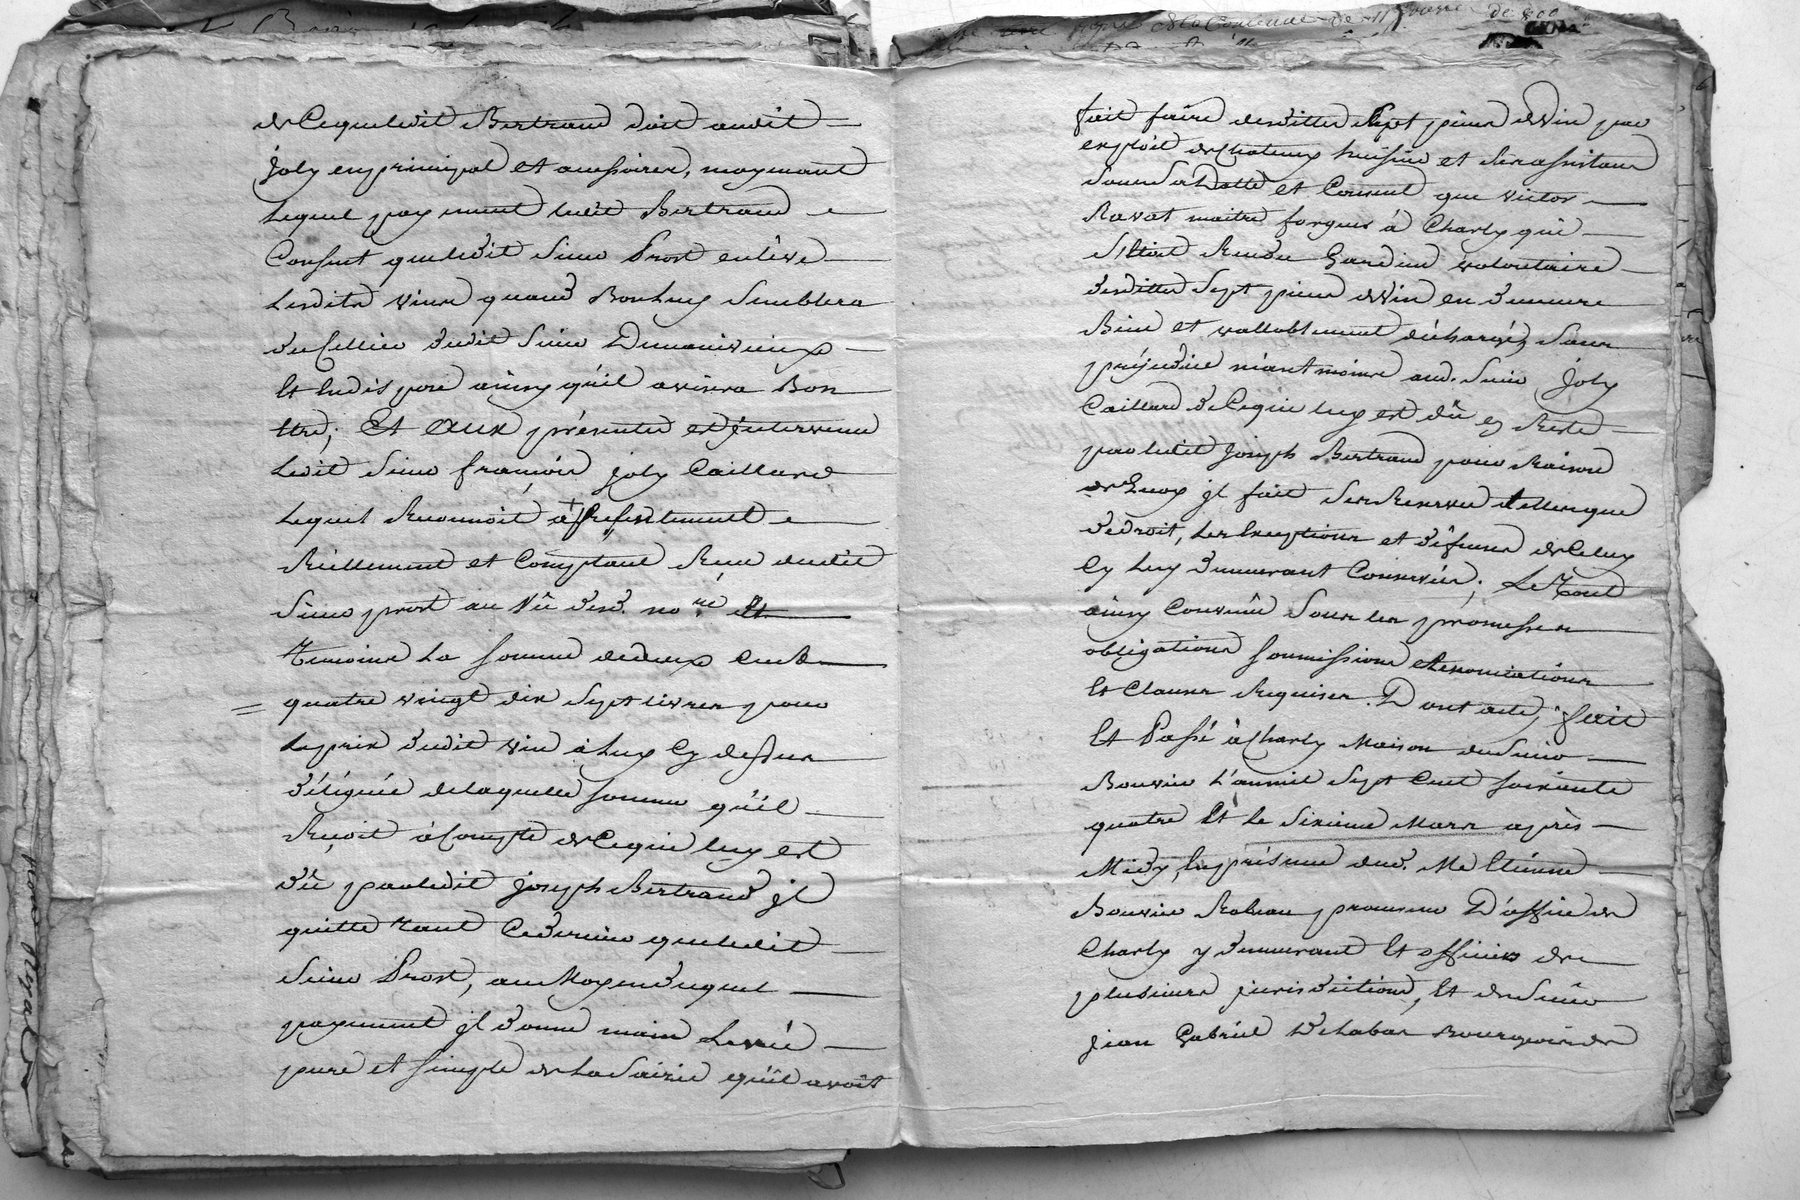 de Cequeledit Bertrand doit audit
joly en principal et accessoires, moyenant
lequel payement ledit Bertrand
Consent queledit Sieur Prost enlève
lesdits vins quand Bon luy Semblera
du Cellier dudit Sieur Dumanivieux
Et endispose ainsy qu'il avisera Bon
Etre; Et aux présentes est Intervenu
ledit Sieur françois joly Caillard
Lequel Reconnoit a presentement
Réellement et Comptant Reçu dudit
Sieur prost au Vû desd. no.re Et
Temoins la somme dedeux Cent
quatre vingt dix Sept livres pour
leprix dudit vin à luy Cy dessus
déléguée delaquelle somme qu'il
Reçoit àCompte de Cequi luy est
dû parledit joseph Bertrand jl
quitte tant Cedernier queledit
Sieur Prost, au Moyen duquel
payement jl donne main Levée
pure et simple de la Saisie qu'il avoit
fait faire desdittes Sept pieces de Vin par
exploit de huissier et Ses assistans
Sous Sa Datte et Consent que victor
Ravat maitre forgeur à Charly qui
S'Etoit Rendu Gardien volontaire
desdittes Sept pieces de Vin en demeure
Bien et vallablement déchargé, Sans
préjudice néantmoins aud. Sieur Joly
Caillard de Cequi luy est dû en Reste
par ledit Joseph Bertrand pour Raison
de quoy jl fait Ses Reserves telles que
de droit, les Exceptions et défenses de Celuy
Cy luy demeurant Conservées; Le Tout
ainsy Convenû Sous les promesses
obligations soumissions et Renonciations
Et Clauses Requises. Dont acte, fait
Et Passé à Charly Maison du Sieur
Bouvier L'an mil Sept Cent soixante
quatre Et Le Sixieme Mars après
Midy, En présence dud. Me Etienne
Bouvier Praticien procureur D'office de
Charly y demeurant Et officier de
plusieurs jurisdictions, Et de Sieur
jean Gabriel Delabas Bourgeois de